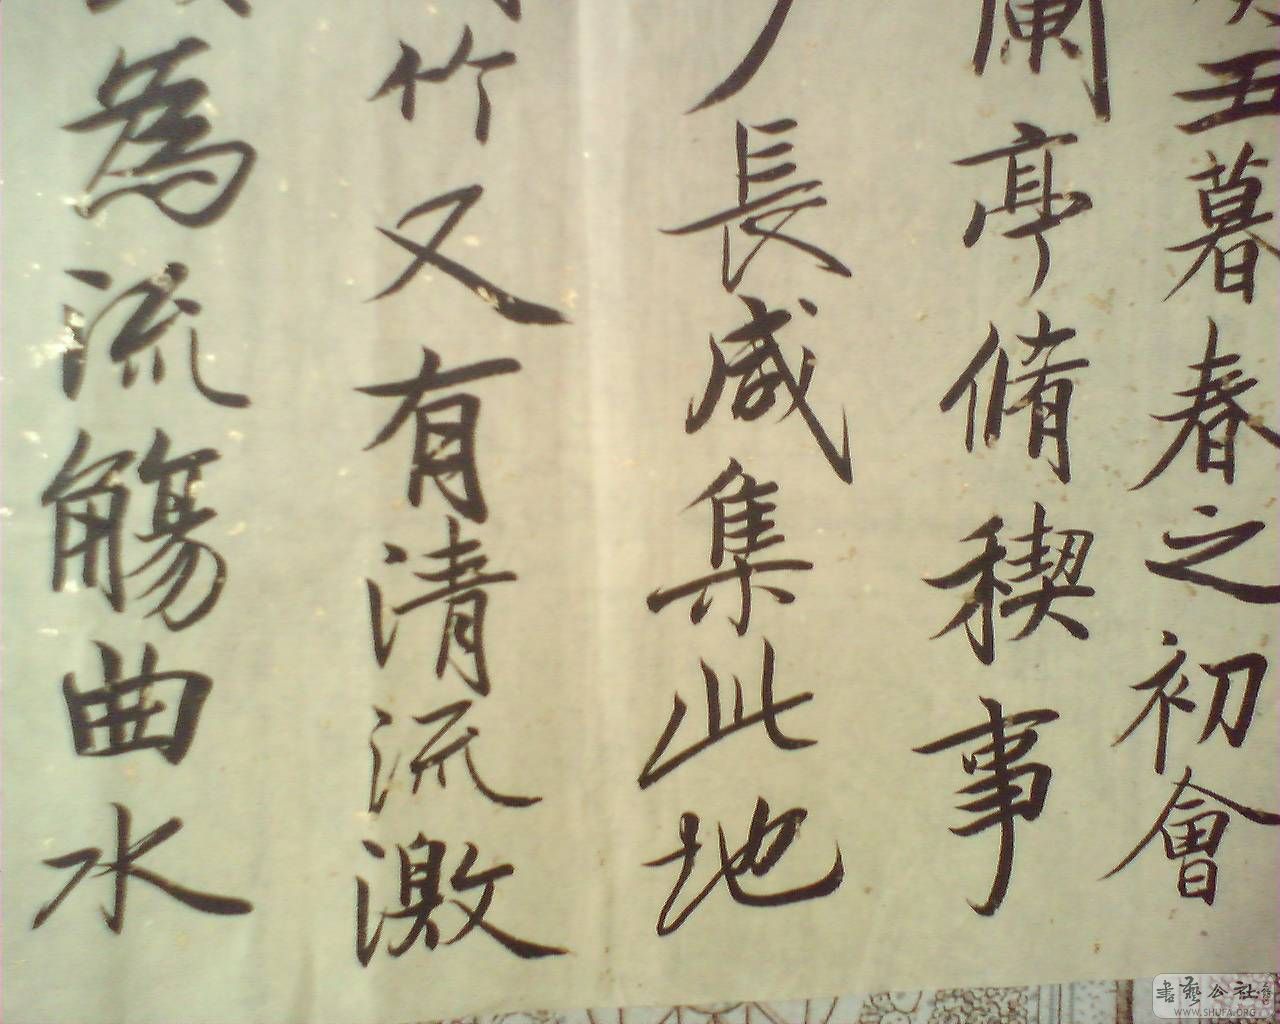 丑暮春之初會
蘭亭脩稧事
長咸集此地
竹又有清流激
為流觴曲水
書藝公社
WWW.SHUFA.ORG